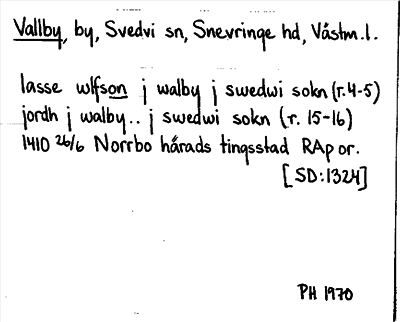 Vallby, by, Svedvi sn, Snevringe hd, Västm.l.
lasse wlfson j walby j swedwi sokn (r. 4-5)
jordh j walby.. j swedwi sokn (r. 15-16)
1410 26/6 Norrbo härads tingsstad RAp or.
[SD:1324]
PH 1970